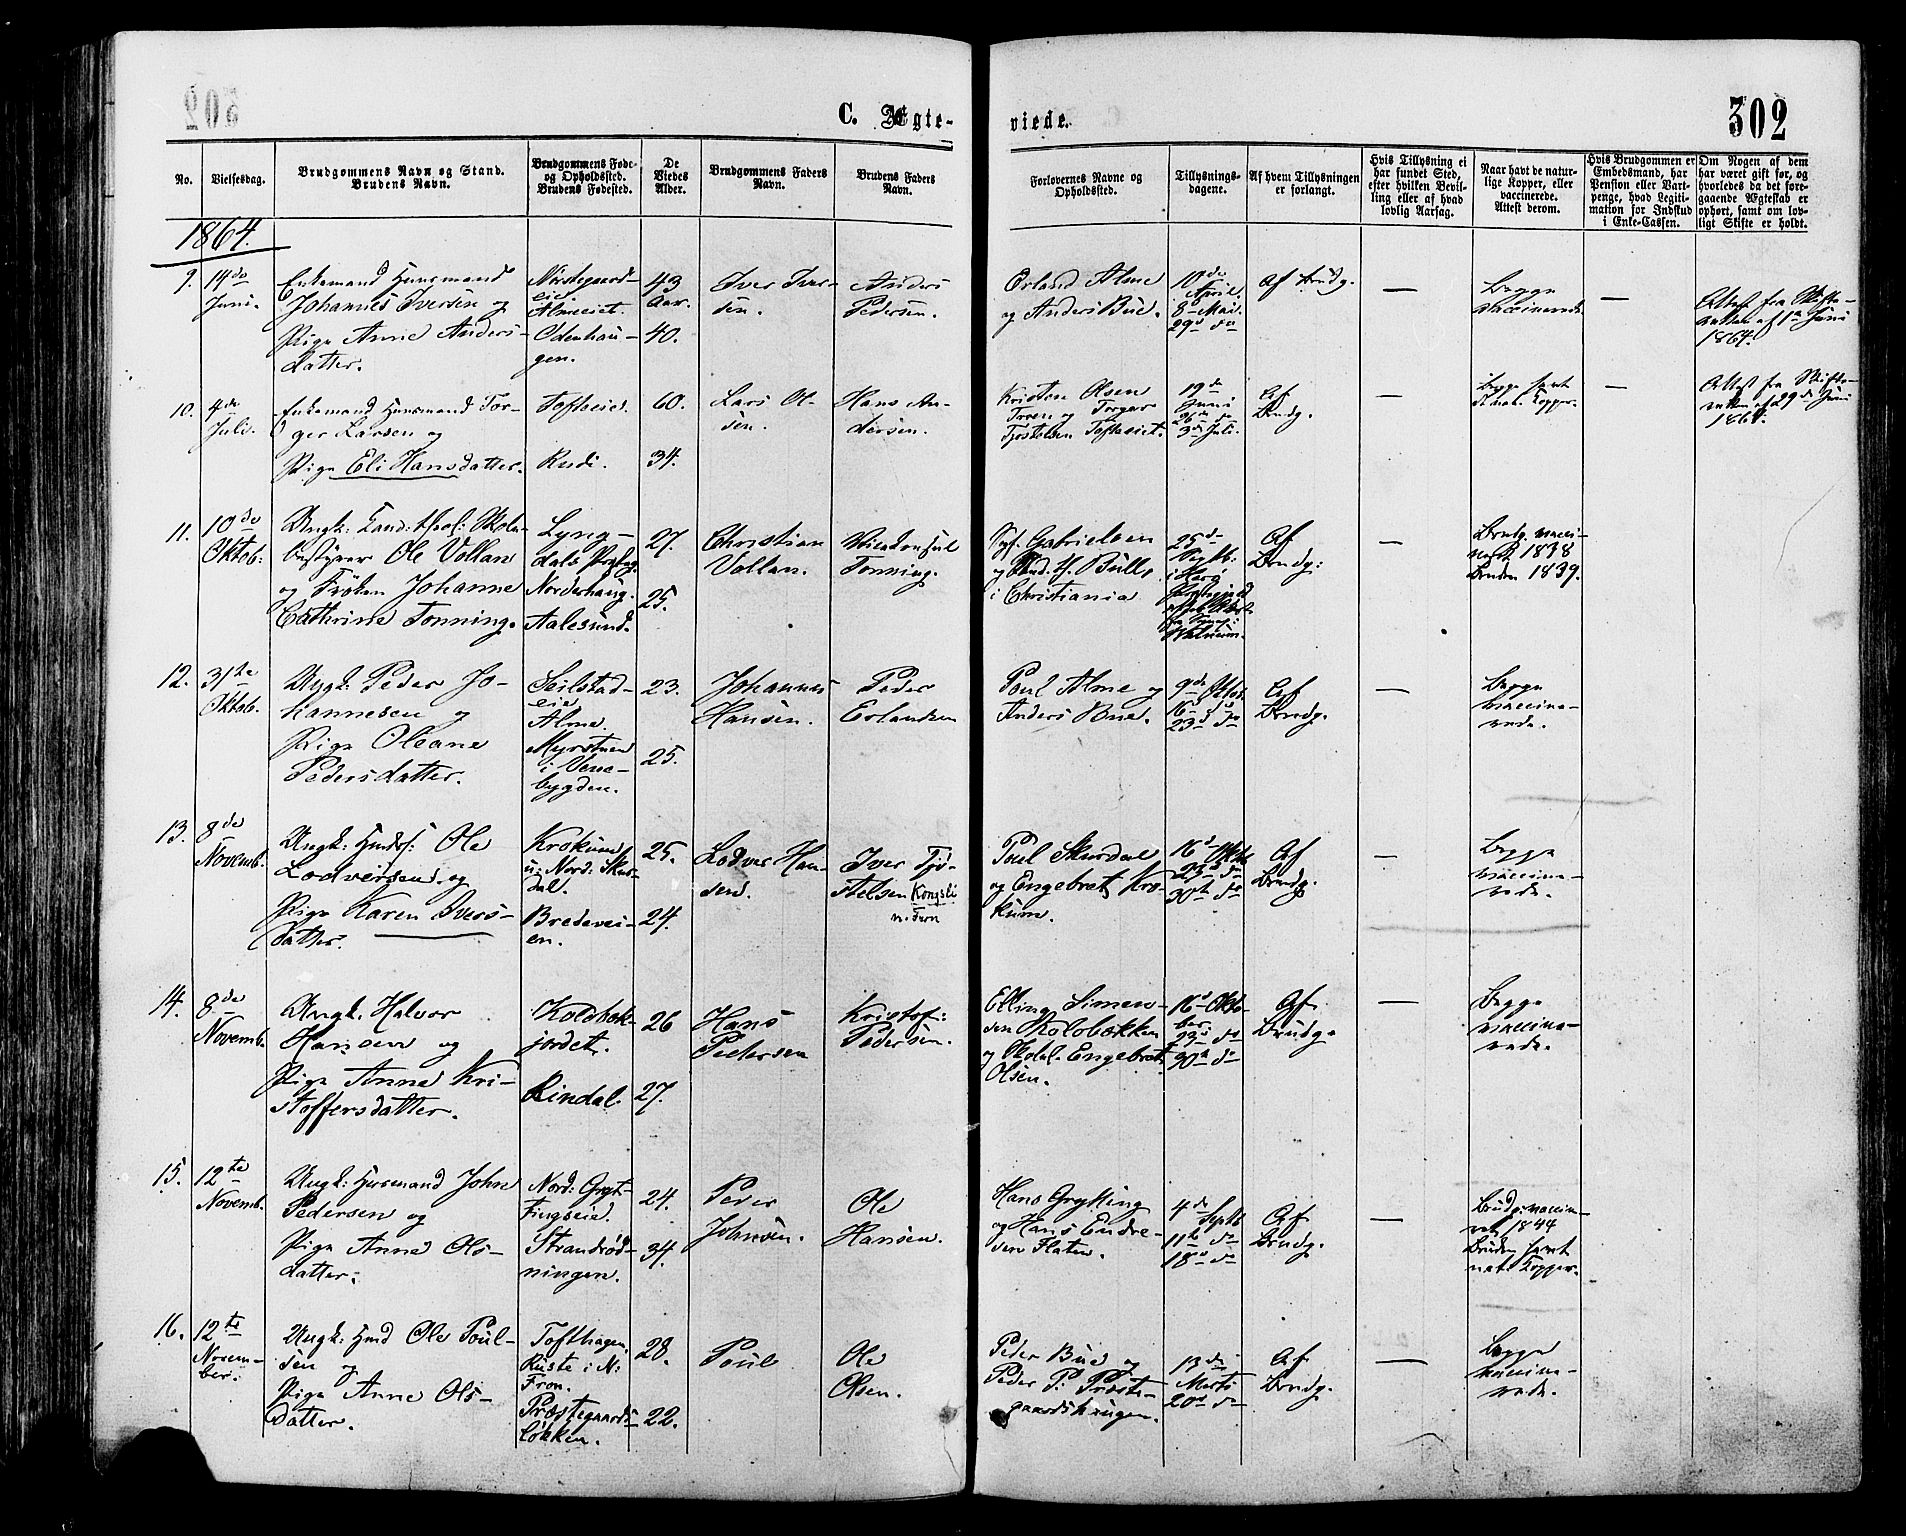 302
C. Ægte-
viede.
302
No.
Vielsesdag.
Brudgommens Navn og Stand.
Brudens Navn.
Brudgommens Føde-
og Opholdssted.
Brudens Fødested.
De
Viedes
Alder.
Brudgommens Faders
Navn.
Brudens Faders
Navn.
Forlovernes Navne og
Opholdssted.
Tillysnings-
dagene.
Af hvem Tillysningen
er forlangt.
Hvis Tillysning ei
har fundet Sted,
efter hvilken Bevil-
ling eller af hvad
lovlig Aarsag.
Naar havt de natur-
lige Kopper, eller
vaccinerede.
Attest derom.
Hvis Brudgommen er
Embedsmand, har
Pension eller Vart-
penge, hvad Legiti-
mation for Indskud
i Enke-Cassen.
Om Nogen af dem
har været gift før, og
hvorledes da det fore-
gaaende Ægteskab er
ophørt, samt om lov-
ligt Skifte er holdt.
1864.
9.
14de
Juni.
Enkemand Huusmand
Johannes Iversen og
Pige Anne Anders-
datter.
eie.
Almeeiet.
Odenhau-
gen.
43
Aar.
40.
Iver Iver-
sen.
Anders
Pedersen.
Erland Alme
og Anders Bue.
10de
April.
8de Mai.
29de do
Af Brudg.
—
Begge
vaccinerede.
—
Attest fra Skifte-
retten af 1ste Juni
1864.
10.
4de
Juli.
Enkemand Huusmand Tor-
ger Larsen og
Pige Eli Hansdatter.
Tofteeie.
Rudi.
60.
34.
Lars Ol-
sen.
Hans An-
dersen.
Kristen Olsen
Troen og Torger
Tjøstelsen Tofteeiet.
19de
Juni
26de do
3de Juli.
Af
Brudg.
—
Begge havt
nat. Kopper.
—
Attest fra Skifte-
retten af 29de Juni
1864.
11.
10de
Oktob:
Ungk: Cand: theol: Skole-
bestyrer Ole Vollan
og Frøken Johanne
Cathrine Tonning.
Lyng-
dals Præstg.
Norderhaug.
Aalesund.
27.
25.
Christian
Vollan.
Vicekonsul
Tonning.
Gabrielsen
og Cand. th. Bull,
i Christiania
25de
Septb:
Af
Brudg:
—
Brudg. vacci-
neret 1838
Bruden 1839.
12.
31te
Oktob.
Ungk: Peder Jo-
hannesen og
Pige Oleane
Pedersdatter.
Seilstad-
eie
Alme
Myrstuen
i Vene-
bygden.
23.
25.
Johannes
Hansen.
Peder
Erlandsen
Poul Alme og
Anders Bue.
9de Oktob
16de do
23de do
Af
Brudg.
—
Begge
vaccine-
rede.
13.
8de
Novemb.
Ungk: Ole
Lodversen og
Pige Karen Ivers-
datter.
Krokum
u. Nord: Skur-
dal.
Bredevei-
en.
25.
24.
Lodver Han-
sen.
Iver Tjø-
stelsen Kongsli
n. Fron
Poul Skurdal
og Engebret Kro-
kum.
16de Oktb
23de do
30te do
Af
Brudg.
—
Begge
vaccine-
rede.
14.
8de
Novemb.
Ungk. Halvor
Hansen og
Pige Anne Kri-
stoffersdatter.
Koldbæk-
jordet.
Rindal.
26
27.
Hans
Pedersen
Kristof:
Pedersen.
Elling Simen-
sen Kolobækken
og Skolel. Engebret
Olsen.
16de Okto-
ber
23de do
30te do
Af
Brudg.
—
Begge
vaccine-
rede.
15.
12te
Novemb.
Ungk: Huusmand John
Pedersen og
Pige Anne Ols-
datter.
Nord: Gryt-
tingseie.
Strandrød-
ningen.
24.
34.
Peder
Johnsen.
Ole
Hansen.
Hans Grytting
og Hans Endre-
sen Flaten.
4de
Septb
11te do
18de do
Af
Brudg.
—
Brudg. vaccine-
ret 1844
Bruden havt
nat. Kopper.
16.
12te
Novem-
ber.
Ungk: Hmd Ole Poul-
sen og
Pige Anne Ols-
datter.
Tofthagen,
Ruste i N:
Fron.
Præstegaards-
løkken.
28.
22.
Poul
Ole
Olsen.
Peder Bue og
Peder P: Præste-
gaardshaugen.
13de
Marts
20de do
Af
Brudg.
—
Begge
vaccine-
rede.